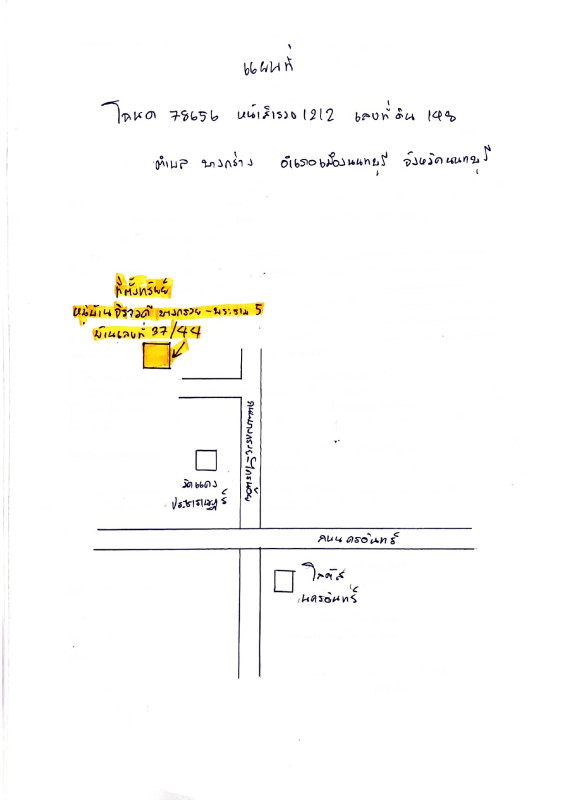 แผนที่
โฉนด 78656 หน้าสำรวจ 1212 เลขที่ดิน 148
ตำบล บางกร่าง อำเภอเมืองนนทบุรี จังหวัดนนทบุรี
ที่ตั้งทรัพย์
หมู่บ้าน จิรวดี บางกรวย-พระราม 5
บ้านเลขที่ 37/44
ถนนบางกรวย-ไทรน้อย
วัดแดง
ประชาราษฎร์
ถนนนครอินทร์
โลตัส
นครอินทร์